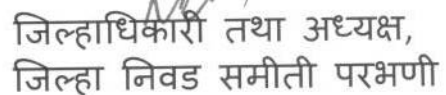 जिल्हाधिकारी तथा अध्यक्ष,
जिल्हा निवड समीती परभणी